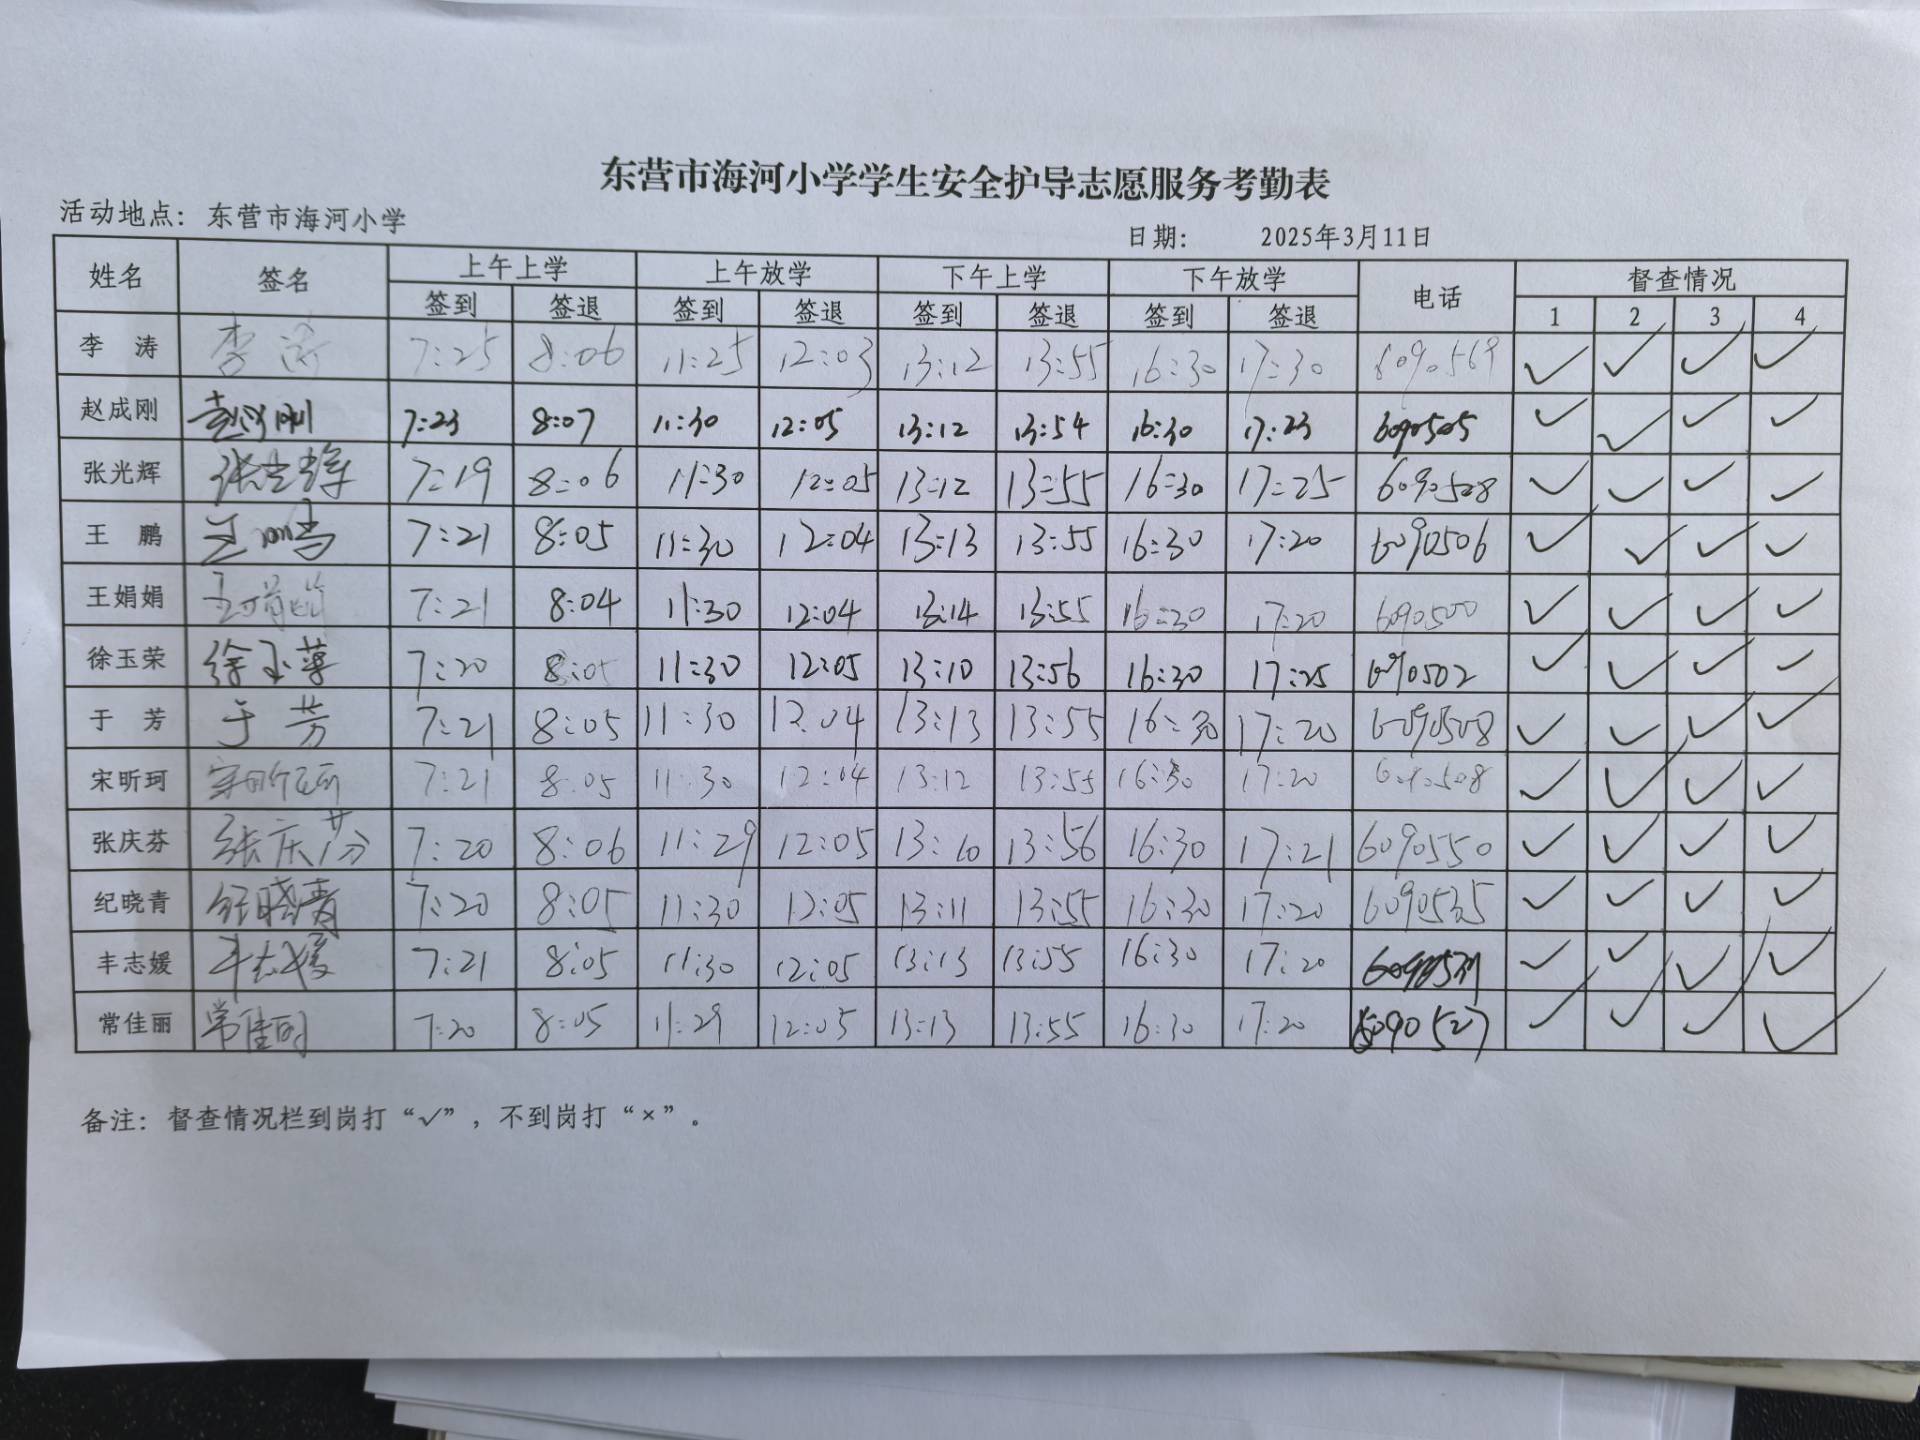 东营市海河小学学生安全护导志愿服务考勤表
活动地点：东营市海河小学
日期： 2025年3月11日
姓名 签名 上午上学 上午放学 下午上学 下午放学 电话 督查情况
签到 签退 签到 签退 签到 签退 签到 签退 1 2 3 4
李 涛 李涛 7:25 8:06 11:25 12:03 13:12 13:55 16:30 17:30 6090569 ✓ ✓ ✓ ✓
赵成刚 赵成刚 7:23 8:07 11:30 12:05 13:12 13:54 16:30 17:23 6090505 ✓ ✓ ✓ ✓
张光辉 张光辉 7:19 8:06 11:30 12:05 13:12 13:55 16:30 17:25 6090528 ✓ ✓ ✓ ✓
王 鹏 王鹏 7:21 8:05 11:30 12:04 13:13 13:55 16:30 17:20 6090506 ✓ ✓ ✓ ✓
王娟娟 王娟娟 7:21 8:04 11:30 12:04 13:14 13:55 16:30 17:20 6090500 ✓ ✓ ✓ ✓
徐玉荣 徐玉荣 7:20 8:05 11:30 12:05 13:10 13:56 16:30 17:25 6090502 ✓ ✓ ✓ ✓
于 芳 于芳 7:21 8:05 11:30 12:04 13:13 13:55 16:30 17:20 6090508 ✓ ✓ ✓ ✓
宋昕珂 宋昕珂 7:21 8:05 11:30 12:04 13:12 13:55 16:30 17:20 6090508 ✓ ✓ ✓ ✓
张庆芬 张庆芬 7:20 8:06 11:29 12:05 13:10 13:56 16:30 17:21 6090550 ✓ ✓ ✓ ✓
纪晓青 纪晓青 7:20 8:05 11:30 12:05 13:11 13:55 16:30 17:20 6090535 ✓ ✓ ✓ ✓
丰志媛 丰志媛 7:21 8:05 11:30 12:05 13:13 13:55 16:30 17:20 ✓ ✓ ✓ ✓
常佳丽 常佳丽 7:20 8:05 11:29 12:05 13:13 13:55 16:30 17:20 6090527 ✓ ✓ ✓ ✓
备注：督查情况栏到岗打“✓”，不到岗打“×”。